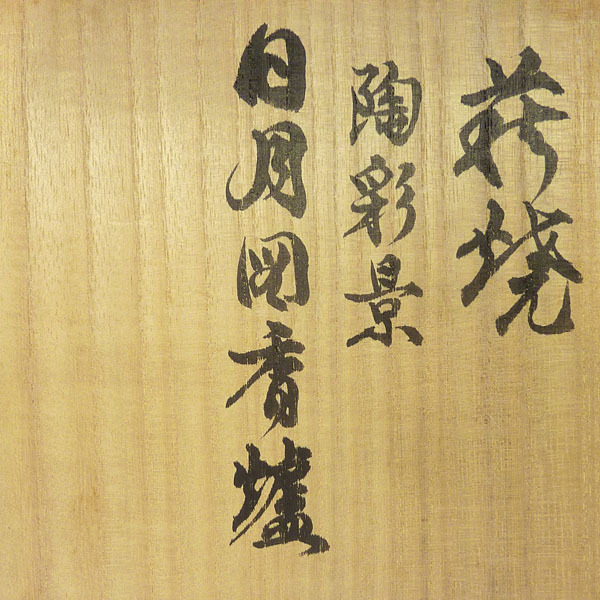 萩焼
陶彩景
日月図香爐